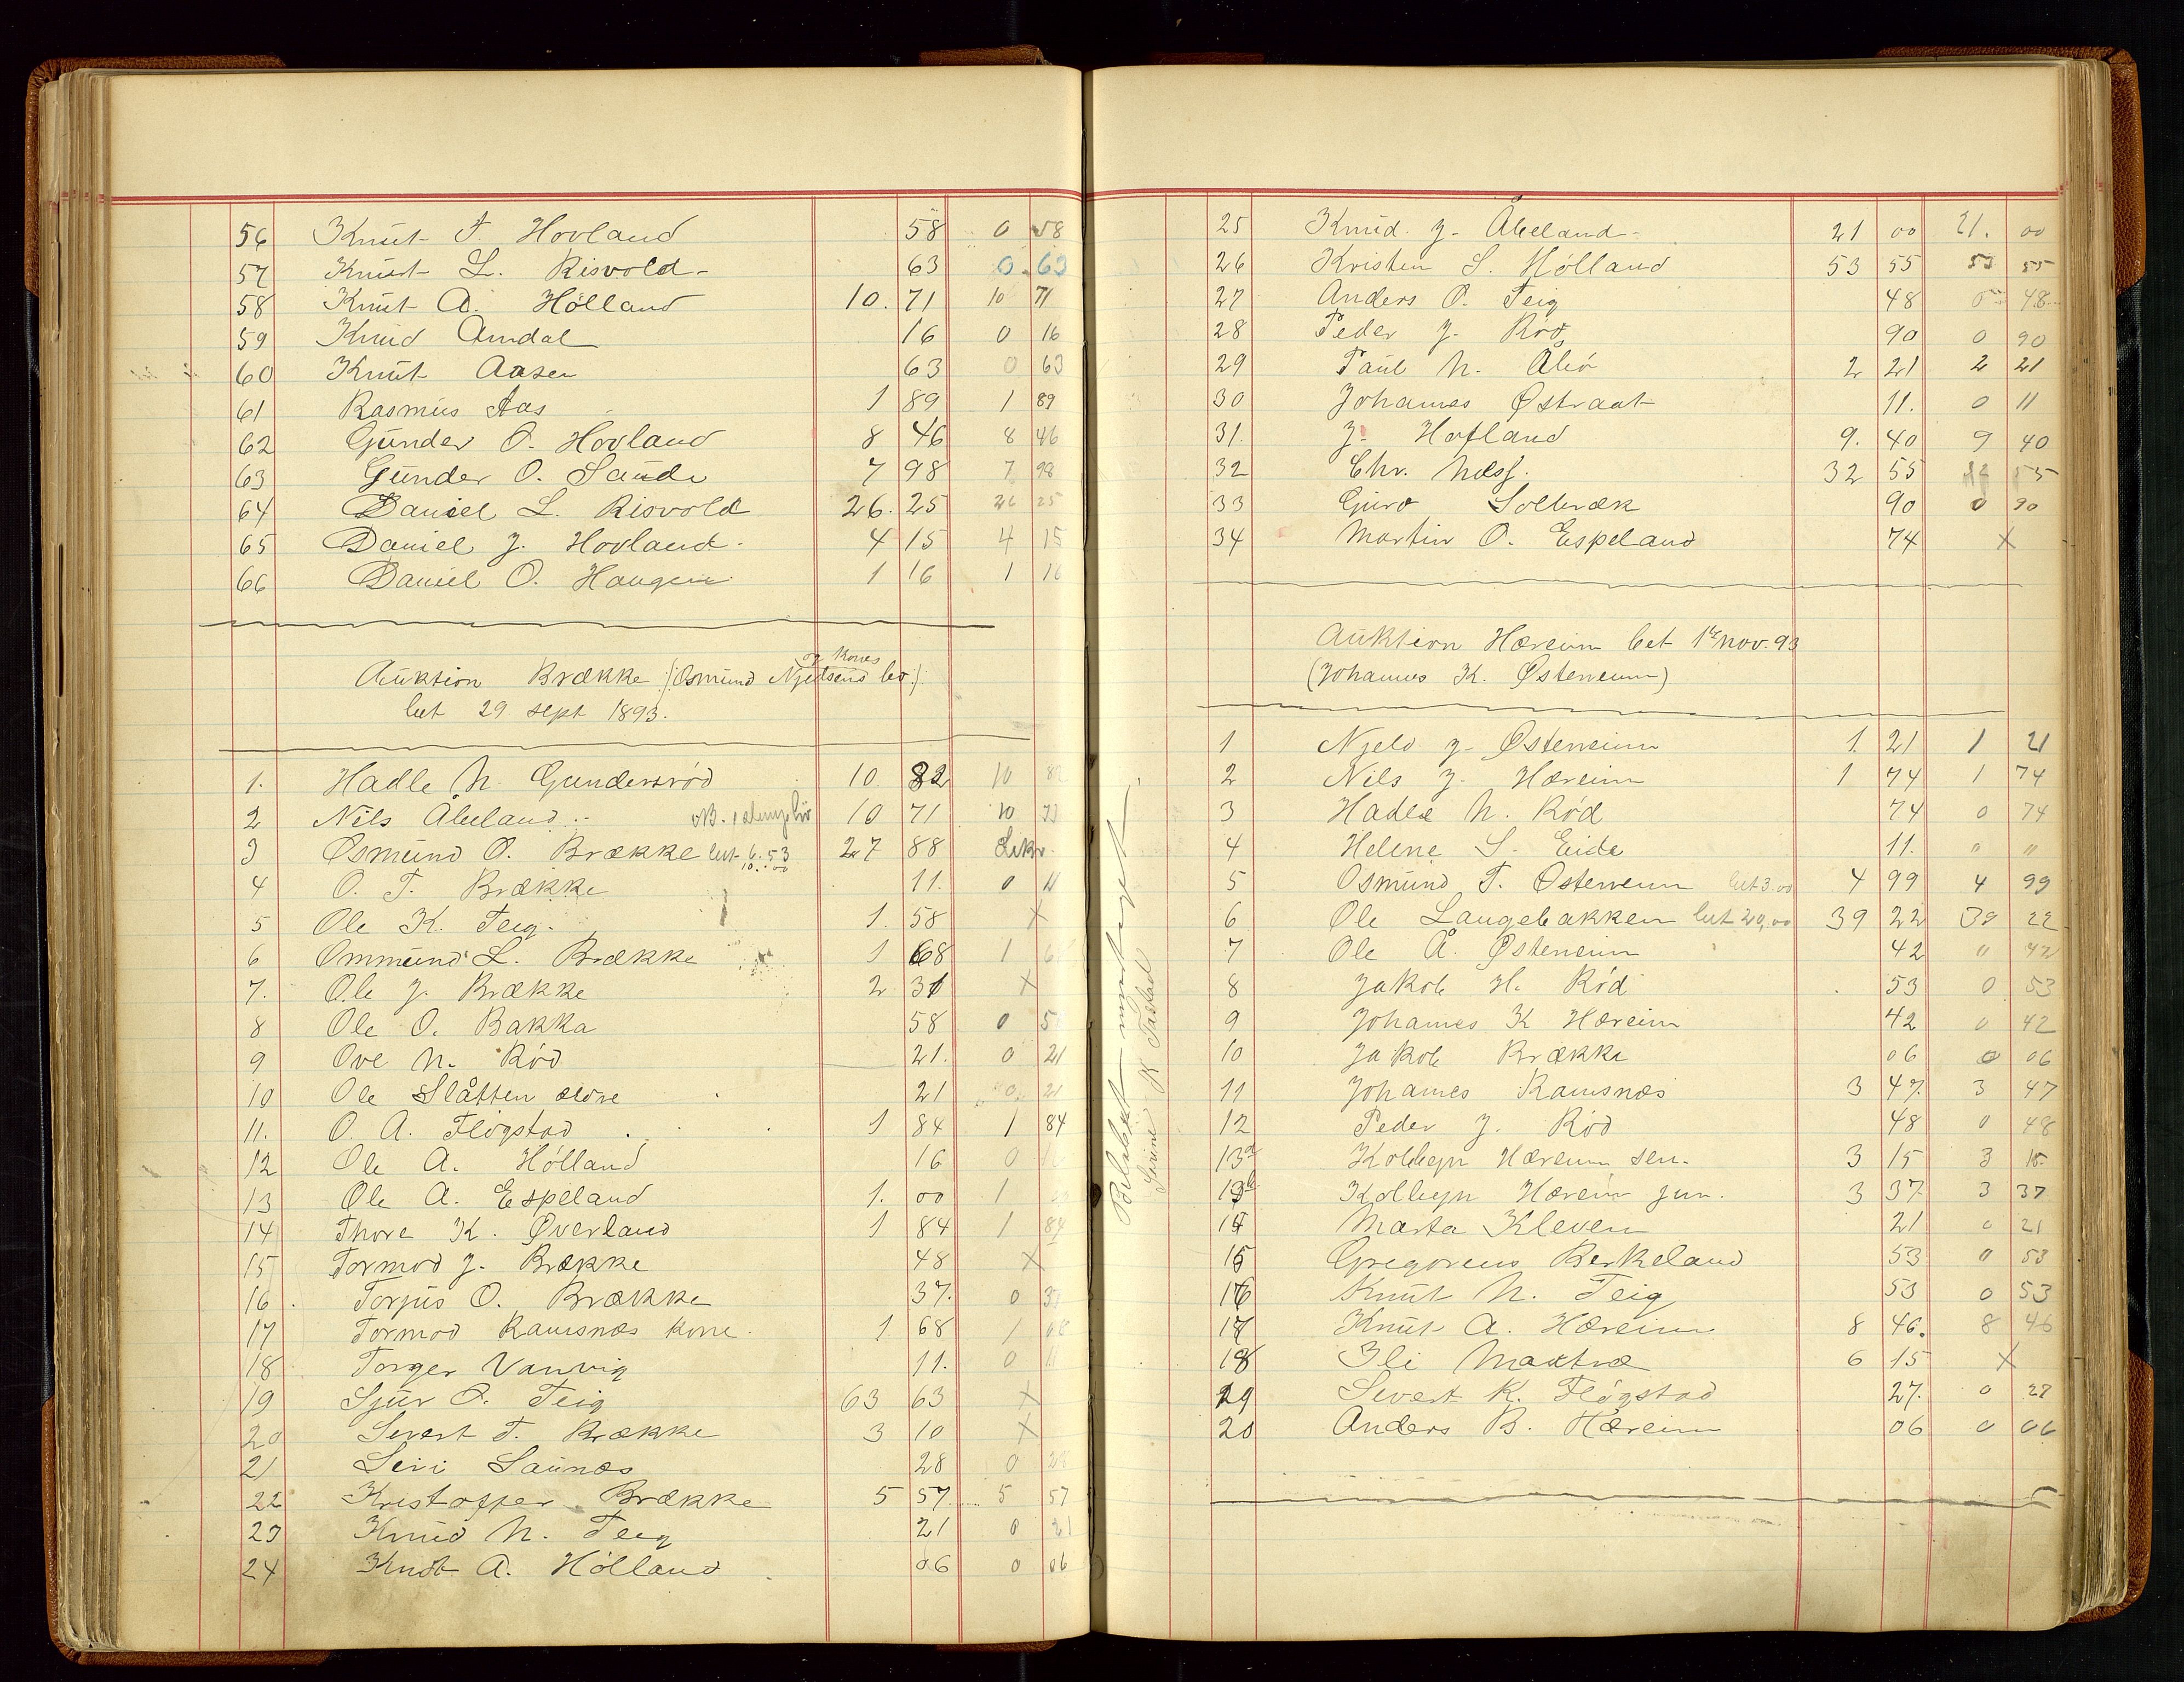 56 Knut T. Hovland 58 0 58
57 Knut L. Risvold - 63 0 63
58 Knut A. Hölland 10. 71 10 71
59 Knud Amdal 16 0 16
60 Knut Aasen 63 0 63
61 Rasmus Aas 1 89 1 89
62 Gunder O. Hovland 8 46 8 46
63 Gunder O. Sande 7 98 7 98
64 Daniel L. Risvold 26. 25 26 25
65 Daniel J. Hovland. 4 15 4 15
66 Daniel O. Haugen 1 16 1 16
og Kones
Auktion Brække /: Osmund Njedsens bo :/
bet 29 sept 1893.
1. Hadle N. Gundersröd 10 82 10 82
2 Nils Åbeland :- NB. 10 71 10 71
3 Osmund O. Brække bet 6.53 27 88
10.00
4 O. T. Brække 11. 0 11
5 Ole K. Teig. 1. 58 X
6 Ommund L. Brække 1 68 1 6
7. Ole J. Brække 2 31 X
8 Ole O. Bakka 58 0 5
9 Ove N. Röd 21. 0 21
10 Ole Slåtten ældre 21 0 21
11. O. A. Flögstad 1 84 1 84
12 Ole A. Hölland 16 0
13 Ole A. Espeland 1. 00 1
14 Thore K. Øverland 1 84 1 84
15 Tormod J. Brække 48 X
16. Torjus O. Brække 37. 0 37
17 Tormod Ramsnæs kone. 1 68 1 68
18 Torger Vanvig 11. 0 11
19 Sjur O. Teig 63 63 X
20 Severt T. Brække 3 10 X
21 Siri Saunæs 28 0 28
22 Kristoffer Brække 5 57 5 57
23 Knud N. Teig 21 0 21
24 Knut A. Hölland 06 0 06
25 Knud J. Åbeland - 21 00 21. 00
26 Kristen S. Hölland 53 55 53 55
27 Anders O. Teig 48 0 48
28 Peder J. Röd 90 0 90
29 Paul N. Åbö 2 21 2 21
30 Johannes Østraat 11. 0 11
31. J. Hafland 9. 40 9 40
32 Chr. Næss. 32 55 55
33 Guro Solbræk 90 0 90
34 Martin O. Espeland 74 X
Auktion Hæreim bet 1ste nov. 93
(Johannes K. Østerneim)
1 Njeld J. Østerneim 1. 21 1 21
2 Nils J. Hæreim 1 74 1 74
3 Hadle N. Röd 74 0 74
4 Helene S. Eide 11. " "
5 Osmund T. Østerneim bet 3.00 4 99 4 99
6 Ole Langebakken bet 20,00 39 22 39 22
7 Ole A. Østerneim 42 " 42
8 Jakob H. Röd 53 0 53
9 Johannes K Hæreim 42 0 42
10 Jakob Brække 06 0 06
11 Johannes Ramsnæs 3 47. 3 47
12 Peder J. Röd 48 0 48
13a Kolbeyn Hæreim sen. 3 15 3 15
13b Kolbeyn Hæreim jun. 3 37 3 37
14 Marta Kleven 21 0 21
15 Gregoreus Berkeland 53 0 53
16 Knut N. Teig 53 0 53
17 Knut A. Hæreim 8 46. 8 46
18 Ili Maxtræ 6 15 X
19 Severt K. Flögstad 27. 0 27
20 Anders B. Hæreim 06 0 06